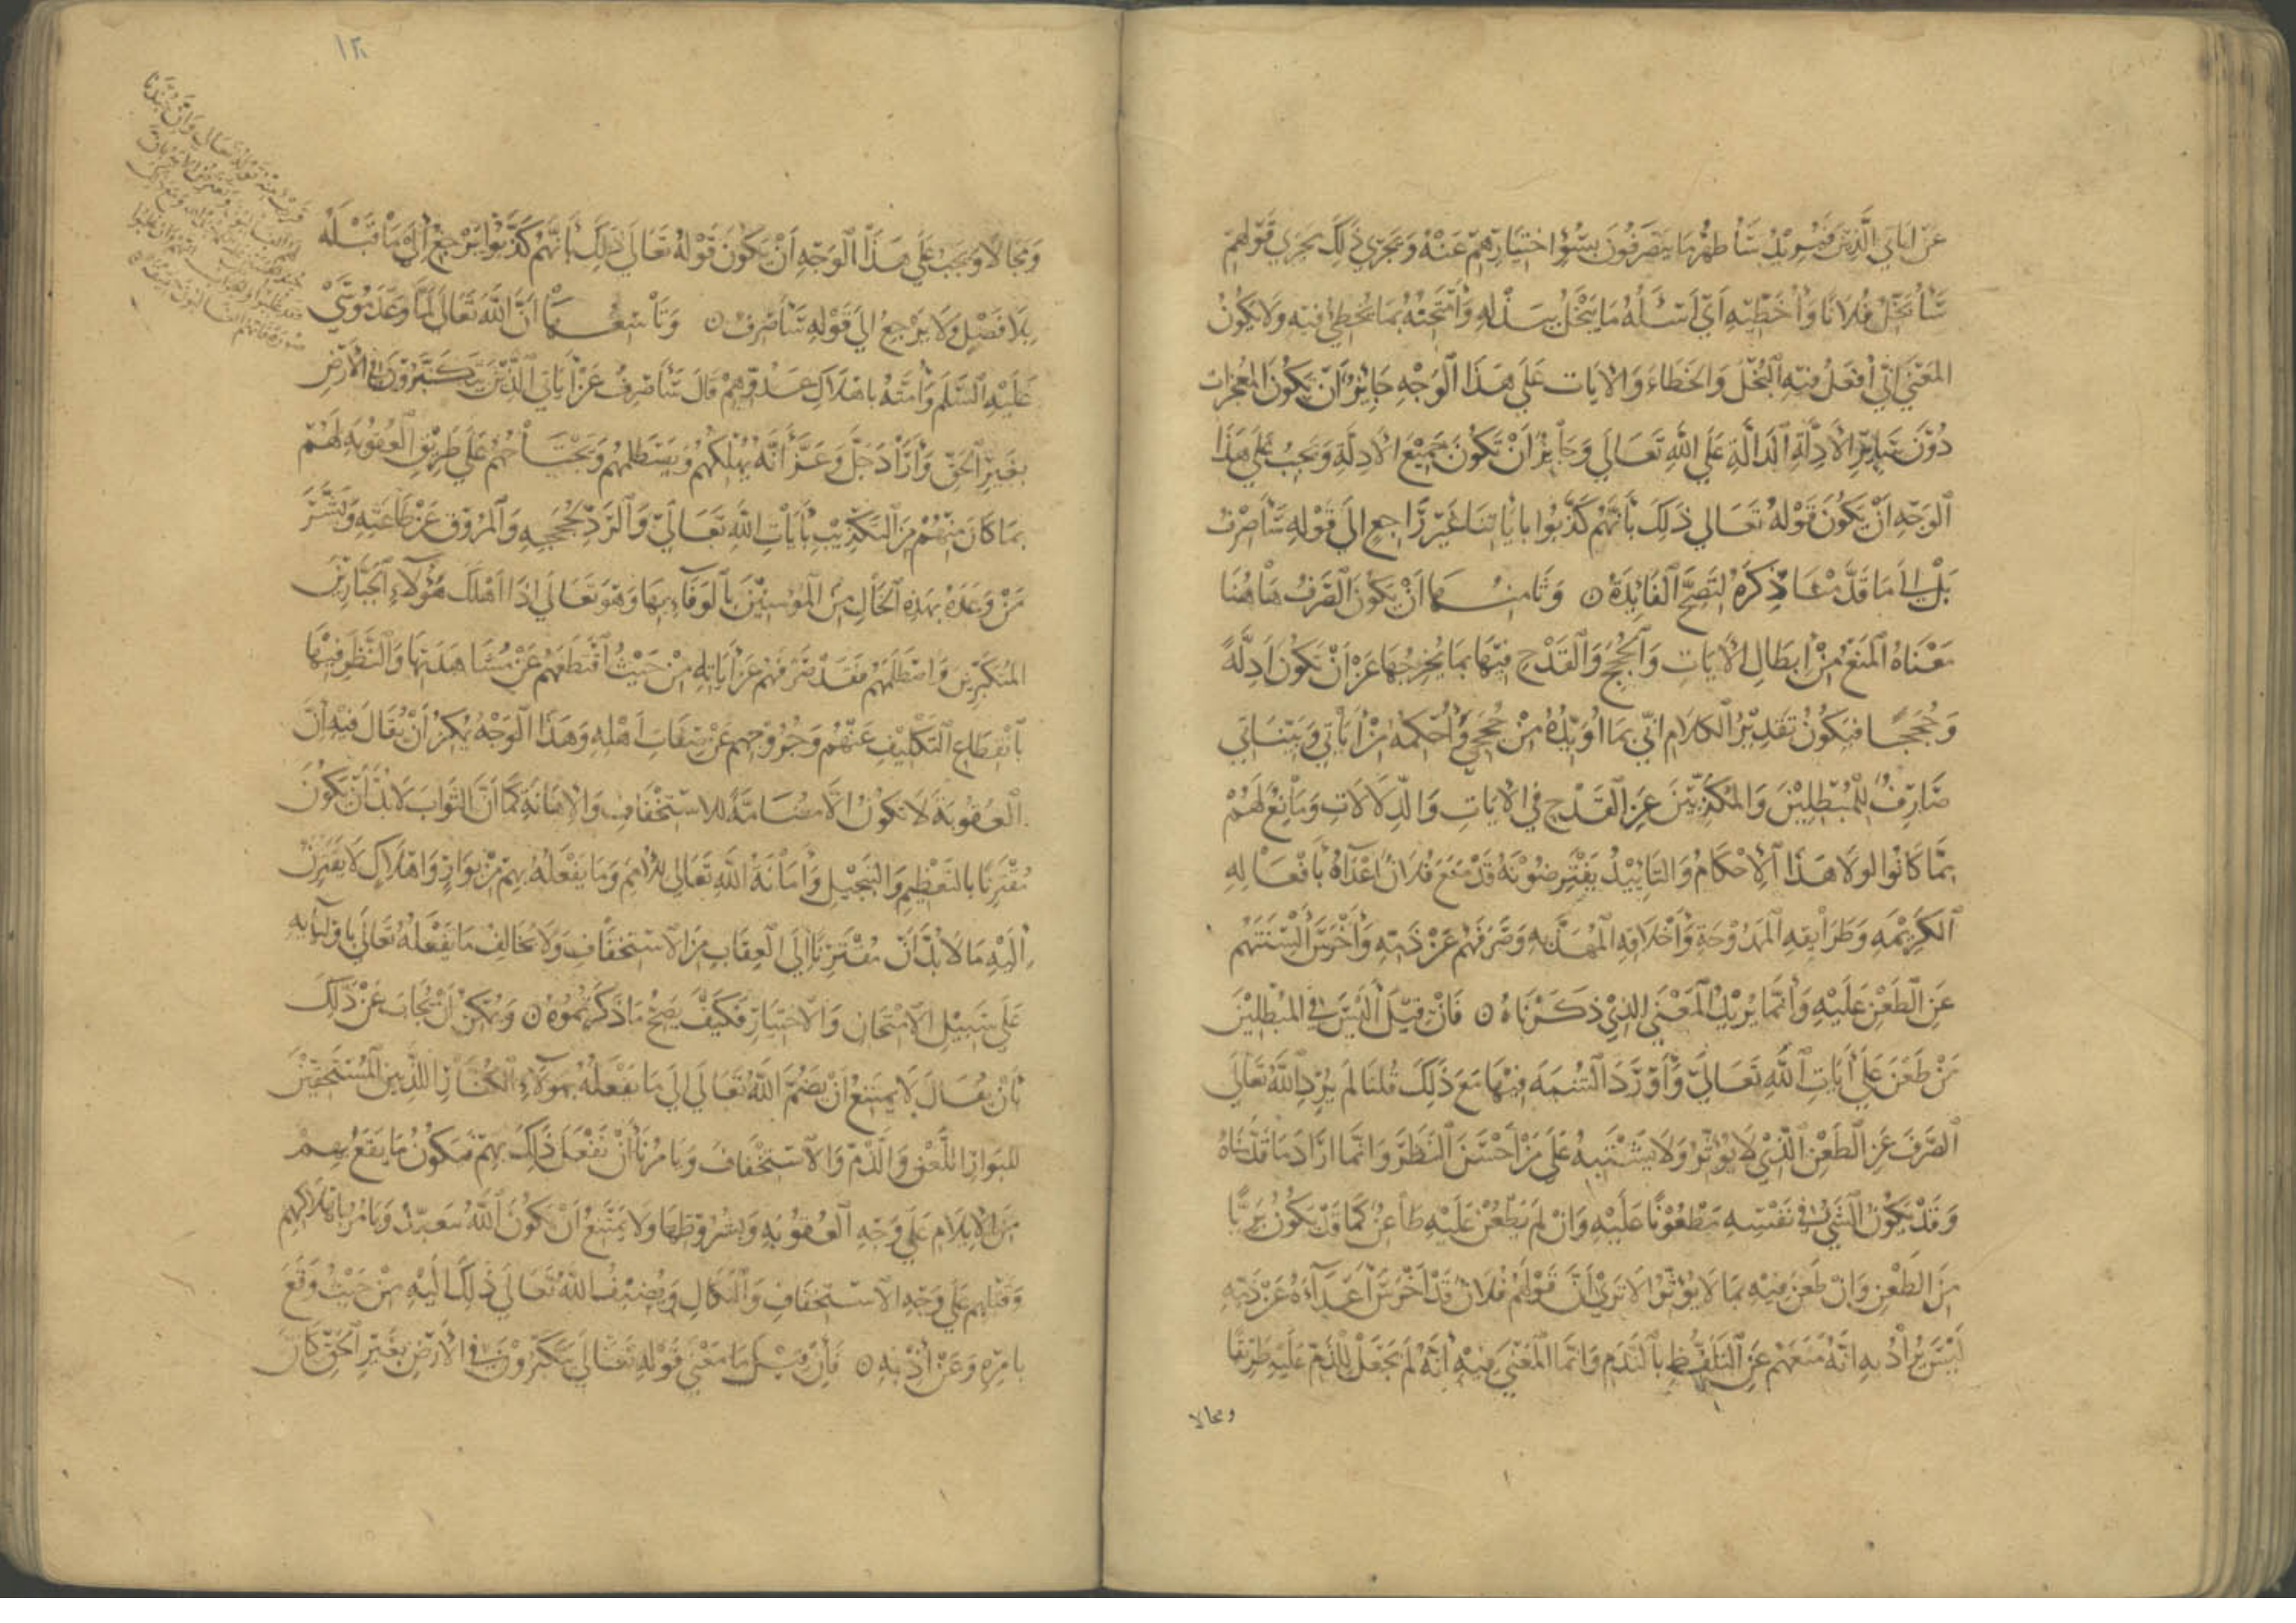 عَنْ اياتي الَّذِينَ ويُريدُ سَأُظهرُ مَا يَصْرَفُونَ بِسُوءِ اخْتِيَارِهِمْ عَنْهُ وَيَجْرِي ذَلِكَ مَجْرَى قَوْلِهِمْ
سَأُبَخِّلُ فُلَانًا وَأُخَطِّيهِ أَيْ أَسْئَلُهُ مَا يَبْخَلُ بِبَذْلِهِ وَأَمْتَحِنُهُ بِمَا يُخْطِئُ فِيهِ وَلَا يَكُونُ
المَعْنَى أَنِّي أَفْعَلُ فِيهِ الْبُخْلَ وَالخَطَاءَ وَالاٰيَات عَلَى هَذَا الْوَجْهِ جَائِزٌ أَنْ يَكُونَ المعْجِزَات
دُوْنَ سَايِرِ الْأَدِلَّةِ الدَّالَّةِ عَلَى اللَّهِ تَعَالَى وَجَايِزٌ أَنْ تَكُونَ جَمِيْعَ الْأَدِلَّةِ وَيَجِبُ عَلَى هَذَا
الْوَجْهِ أَنْ يَكُونَ قَوْلهُ تَعَالى ذَلِكَ بِأَنَّهُمْ كَذَّبُوا بِاٰيَاتِنَا غَيْرَ رَاجِعٍ إِلَى قَوْلِهِ سَأَصْرِفُ
بَلْ إِلَى مَا قَدَّمْنَا ذِكْرَهُ لِتَصِحَّ الْفَائِدَةُ ن وَثَامِنُهَا أَنْ يَكُونَ الصَّرْفُ هَاهُنَا
مَعْنَاهُ الْمَنْعَ مِنْ اِبْطَالِ الْآيَاتِ وَالْحُجَجِ وَالْقَدْحِ فِيْهَا بِمَا يُخْرِجُهَا عَنْ أَنْ تَكُونَ أَدِلَّةً
وَحُجَجًا فَيَكُونُ تَقْدِيْرُ الكَلَامِ انّي بِمَا اُؤَيِّدُهُ مِنْ حُجَجِي وَأُحْكِمُهُ مِنْ اٰيَاتِي وَبَيِّنَاتِي
صَارِفٌ لِلْمُبْطِلِيْنَ وَالمُكَذِّبِيْنَ عَنِ الْقَدْحِ فِي الْآيَاتِ وَالدِّلَالَاتِ وَمَانِعٌ لَهُمْ
مِمَّا كَانُوا لولَا هَذَا الْإِحْكَامُ وَالتَّايِيْدُ يَفْتَرِضُونَهُ قَدْ مَنَعَ فُلَانٌ اَعْدَآءَهُ بِأَفْعَالِهِ
الكَرِيْمَةِ وَطَرَايِقِهِ الْمَمْدُوْحَةِ وَأَخْلَاقِهِ الْمُهَذَّبَةِ وَصَرَفَهُمْ عَنْ ذَمِّهِ وَأَخْرَسَ أَلْسِنَتَهُمْ
عَنِ الْطَّعْنِ عَلَيْهِ وَإِنَّمَا يُرِيْدُ الْمَعْنَى الذِي ذَكَرْنَاهُ ن فَاِنْ قِيْلَ أَلَيْسَ فِي المُبْطِلِيْنَ
مَنْ طَعَنَ عَلَى أَيَاتِ اللَّهِ تَعَالَى وَأَوْرَدَ الشُّبْهَةَ فِيْهَا مَعَ ذَلِكَ قُلنَا لَمْ يُرِدِ اللَّهُ تَعَالَى
الصَّرْفَ عَنِ الطَّعْنِ الَّذِي لَا يُؤَثِّرُ وَلَا يَشْتَبِهُ عَلَى مَنْ أَحْسَنَ النَّظَرَ وَاِنَّمَا اَرَادَ مَا قَدَّمْنَاهُ
وَقَدْ يَكُوْنُ الْشَيْءُ فِي نَفْسِهِ مَطْعُوْنًا عَلَيْهِ وَاِنْ لَمْ يَطْعُنْ عَلَيْهِ طَاعِنٌ كَمَا قَدْ يَكُونُ بَرِيًّا
مِنَ الطَّعْنِ وَاِنْ طُعِنَ فِيْهِ بِمَا لَا يُؤَثِّرُ اَلَا تَرَى أَنَّ قَوْلَهُمْ فُلَانٌ قَدْ أَخْرَسَ أَعْدَآءَهُ عَنْ ذَمِّهِ
لَيْسَ يُرَادُ بِهِ اَنَّهُ مَنَعَهُمْ عَنِ التَّلَفُّظِ بِالذَّمِ وَاِنَّمَا الْمَعْنَى فِيْهِ أَنَّهُ لَمْ يَجْعَلْ لِلذَّمِّ عَلَيْهِ طَرِيْقًا
ومجالا
١٢
وَمَجَالًا وَيَجِبُ عَلَى هَذَا الْوَجْهِ أَنْ يَكُونَ قَوْلُهُ تَعَالَى ذَلِكَ بِأَنَّهُمْ كَذَّبُوا يَرْجِعُ إِلَى مَا قَبْلَهُ
بِلَا فَصْلٍ وَلَا يَرْجِعُ اِلَى قَوْلِهِ سَأَصْرِفُ ن وَتَاسِعُهَا اَنَّ اللَّهَ تَعَالَى لَمَّا وَعَدَ مُوسَى
عَلَيْهِ السَّلَمُ وَأُمَّتَهُ بِاهْلَاكِ عَدُوِّهِمْ قَالَ سَأَصْرِفُ عَنْ أَيَاتِي الَّذِيْنَ يَتَكَبَّرُوْنَ فِي الْاَرْضِ
بِغَيْرِ الْحَقِّ وَأَرَادَ جَلَّ وَعَزَّ أَنَّهُ يُهْلِكُهُمْ وَيَصْطَلِمُهُمْ وَيَجْتَاحُهُمْ عَلَى طَرِيْقِ الْعُقُوبَةِ لَهُمْ
بِمَا كَانَ مِنْهُمْ مِنَ التَّكْذِيْبِ بِأَيَاتِ اللَّهِ تَعَالَى وَالرَّدِّ لِحُجَجِهِ وَالْمُرُوْقِ عَنْ طَاعَتِهِ وَبَشَّرَ
مَنْ وَعَدَهُ بِهَذِهِ الْحَالِ مِنَ الْمُؤْمِنِيْنَ بِالْوَفَآءِ بِهَا وَهُوَ تَعَالَى اِذَا اَهْلَكَ هَؤُلَآءِ الْجَبَّارِيْنَ
المُتَكَبِّرِيْنَ وَاصْطَلَمَهُمْ فَقَدْ صَرَفَهُمْ عَنْ أَيَاتِهِ مِنْ حَيْثُ اقْتَطَعَهُمْ عَنْ مُشَاهَدَتِهَا وَالنَّظَرِ فِيْهَا
بِانْقِطَاعِ التَّكْلِيْفِ عَنْهُمْ وَخُرُوْجِهِمْ عَنْ صِفَاتِ اَهْلِهِ وَهَذَا الْوَجْهُ يُمْكِنُ أَنْ يُقَالَ فِيْهِ اِنَّ
الْعُقُوْبَةَ لَا تَكُوْنُ اِلَّا مُضَامَّةً لِلاسْتِخْفَافِ وَالْاِهَانَةِ كَمَا اَنَّ الثَّوَابَ لَا بُدَّ أَنْ يَكُوْنَ
مُقْتَرِنًا بِالتَّعْظِيْمِ وَالتَّبْجِيْلِ وَأِمَاتَةُ اللَّهِ تَعَالَى لِلْأُمَمِ وَمَا يَفْعَلُهُ بِهِمْ مِنْ بَوَارٍ وَاِهْلَاكٍ لَا يَقْتَرِنُ
اِلَيْهِ مَا لَا بُدَّ أَنْ مُقْتَرِنًا اِلَى الْعِقَابِ مِنَ الاسْتِخْفَافِ وَلَا يُخَالِفُ مَا يَفْعَلُهُ تَعَالَى بِاَوْلِيَآئِهِ
عَلَى سَبِيْلِ الْاِمْتِحَانِ وَالْاِخْتِبَارِ فَكَيْفَ يَصِحُّ مَا ذَكَرْتُمُوْهُ ن وَيُمْكِنُ أَنْ يُجَابَ عَنْ ذَلِكَ
بِأَنْ يُقَالَ لَا يَمْتَنِعُ اَنْ يَضُمَّ اللَّهُ تَعَالَى اِلَى مَا يَفْعَلُهُ بِهَؤُلَآءِ الْكُفَّارِ الَّذِيْنَ الْمُسْتَحِقِّيْنَ
لِلْبَوَارِ اللَّعْنَ وَالذَّمَّ وَالاسْتِخْفَافَ وَيَامُرَنَا أَنْ نَفْعَلَ ذَلِكَ بِهِمْ فَيَكُوْنُ مَا يَقَعُ بِهِمْ
مِنَ الْاِيْلَامِ عَلَى وَجْهِ الْعُقُوْبَةِ وَبِشُرُوْطِهَا وَلَا يَمْتَنِعُ اَنْ يَكُوْنَ اللَّهُ يَتَعَبَّدُ وَيَامُرُ بِاِهْلَاكِهِمْ
وَقَتْلِهِمْ عَلَى وَجْهِ الاسْتِخْفَافِ وَالنَّكَالِ وَيُضِيْفُ اللَّهُ تَعَالَى ذَلِكَ اِلَيْهِ مِنْ حَيْثُ وَقَعَ
بِامْرِهِ وَعَنْ اِذْنِهِ ن فَاِنْ قِيْلَ مَا مَعْنَى قَوْلِهِ تَعَالَى يَتَكَبَّرُوْنَ فِي الْاَرْضِ بِغَيْرِ الْحَقِّ كَاَنَّ